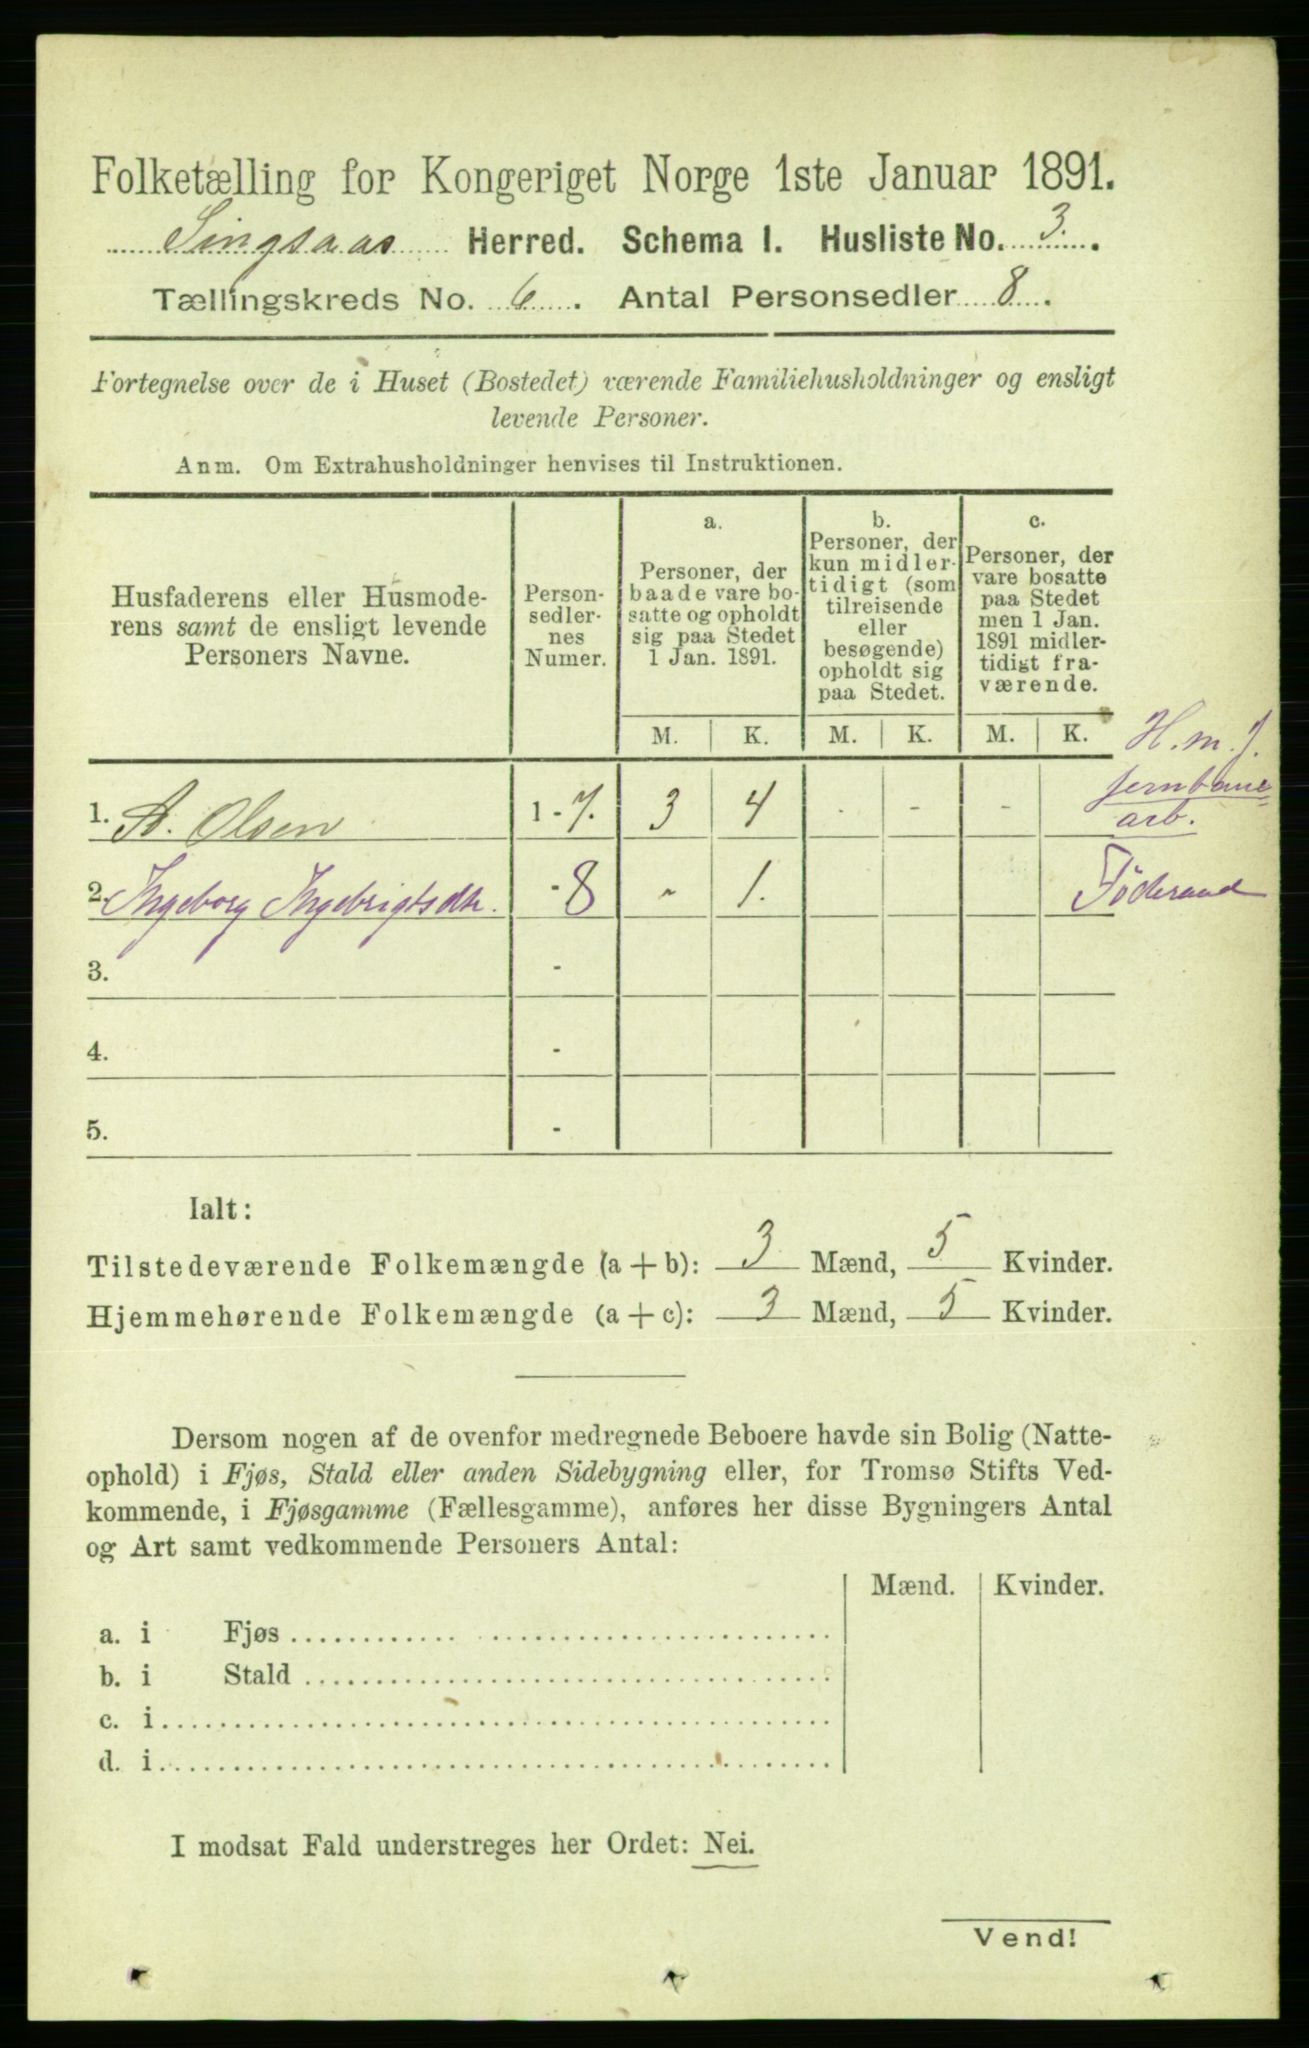 Folketælling for Kongeriget Norge 1ste Januar 1891.
Singsaas Herred. Schema I. Husliste No. 3.
Tællingskreds No. 6. Antal Personsedler 8.
Fortegnelse over de i Huset (Bostedet) værende Familiehusholdninger og ensligt
levende Personer.
Anm. Om Extrahusholdninger henvises til Instruktionen.
Husfaderens eller Husmode-
rens samt de ensligt levende
Personers Navne.
Person-
sedler-
nes
Numer.
a.
Personer, der
baade vare bo-
satte og opholdt
sig paa Stedet
1 Jan. 1891.
b.
Personer, der
kun midler-
tidigt (som
tilreisende
eller
besøgende)
opholdt sig
paa Stedet.
c.
Personer, der
vare bosatte
paa Stedet
men 1 Jan.
1891 midler-
tidigt fra-
værende.
M. K. M. K. M. K.
H. m. J.
jernbane
arb.
1. A. Olsen 1 - 7. 3 4 - - -
2. Ingeborg Ingebrigtsdtr. - 8 - 1. Föderaad
3. -
4. -
5. -
Ialt:
Tilstedeværende Folkemængde (a + b): 3 Mænd, 5 Kvinder.
Hjemmehørende Folkemængde (a + c): 3 Mænd, 5 Kvinder.
Dersom nogen af de ovenfor medregnede Beboere havde sin Bolig (Natte-
ophold) i Fjøs, Stald eller anden Sidebygning eller, for Tromsø Stifts Ved-
kommende, i Fjøsgamme (Fællesgamme), anføres her disse Bygningers Antal
og Art samt vedkommende Personers Antal:
Mænd. Kvinder.
a. i Fjøs
b. i Stald
c. i
d. i
I modsat Fald understreges her Ordet: Nei.
Vend!